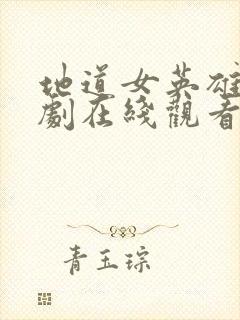 地道女英雄
劇在綫觀看
青玉琮